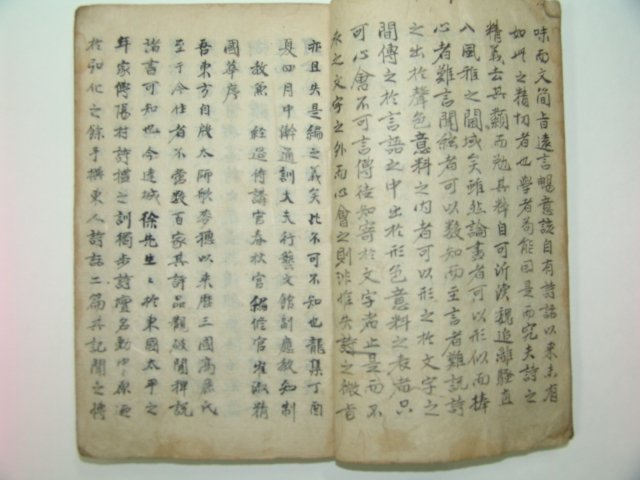 味而文簡旨遠言暢意該自有詩話以來未有
如此之精切者也學者苟能因是而究夫詩之
精義去其纇而勉其粹自可沂漢魏追離騷直
入風雅之閫域矣雖然論畫者可以形似而捧
心者難言聞絃者可以數知而至言者難說詩
之出於聲色意料之內者可以形之於文字之
間傳之於言語之中出於形色意料之表者只
可心會不可言傳徒知寄於文字者止是而不
求之文字之外而心會之則非惟失詩之微旨
亦且失是編之義矣於不可不知也龍集丁酉
夏四月中澣通訓大夫行藝文館副應敎知制
敎兼 經筵侍講官春秋官編修官崔淑精
國華序
吾東方自殷太師歌麥穗以來歷三國高麗氏
至于今作者不啻數百家其詩品觀破閒稗說
諸書可知也今達城徐先生之於東國太平之
年家傳陽村詩禮之訓獨步詩壇名動中原迺
於弘化之餘手撰東人詩話二篇共記聞之博